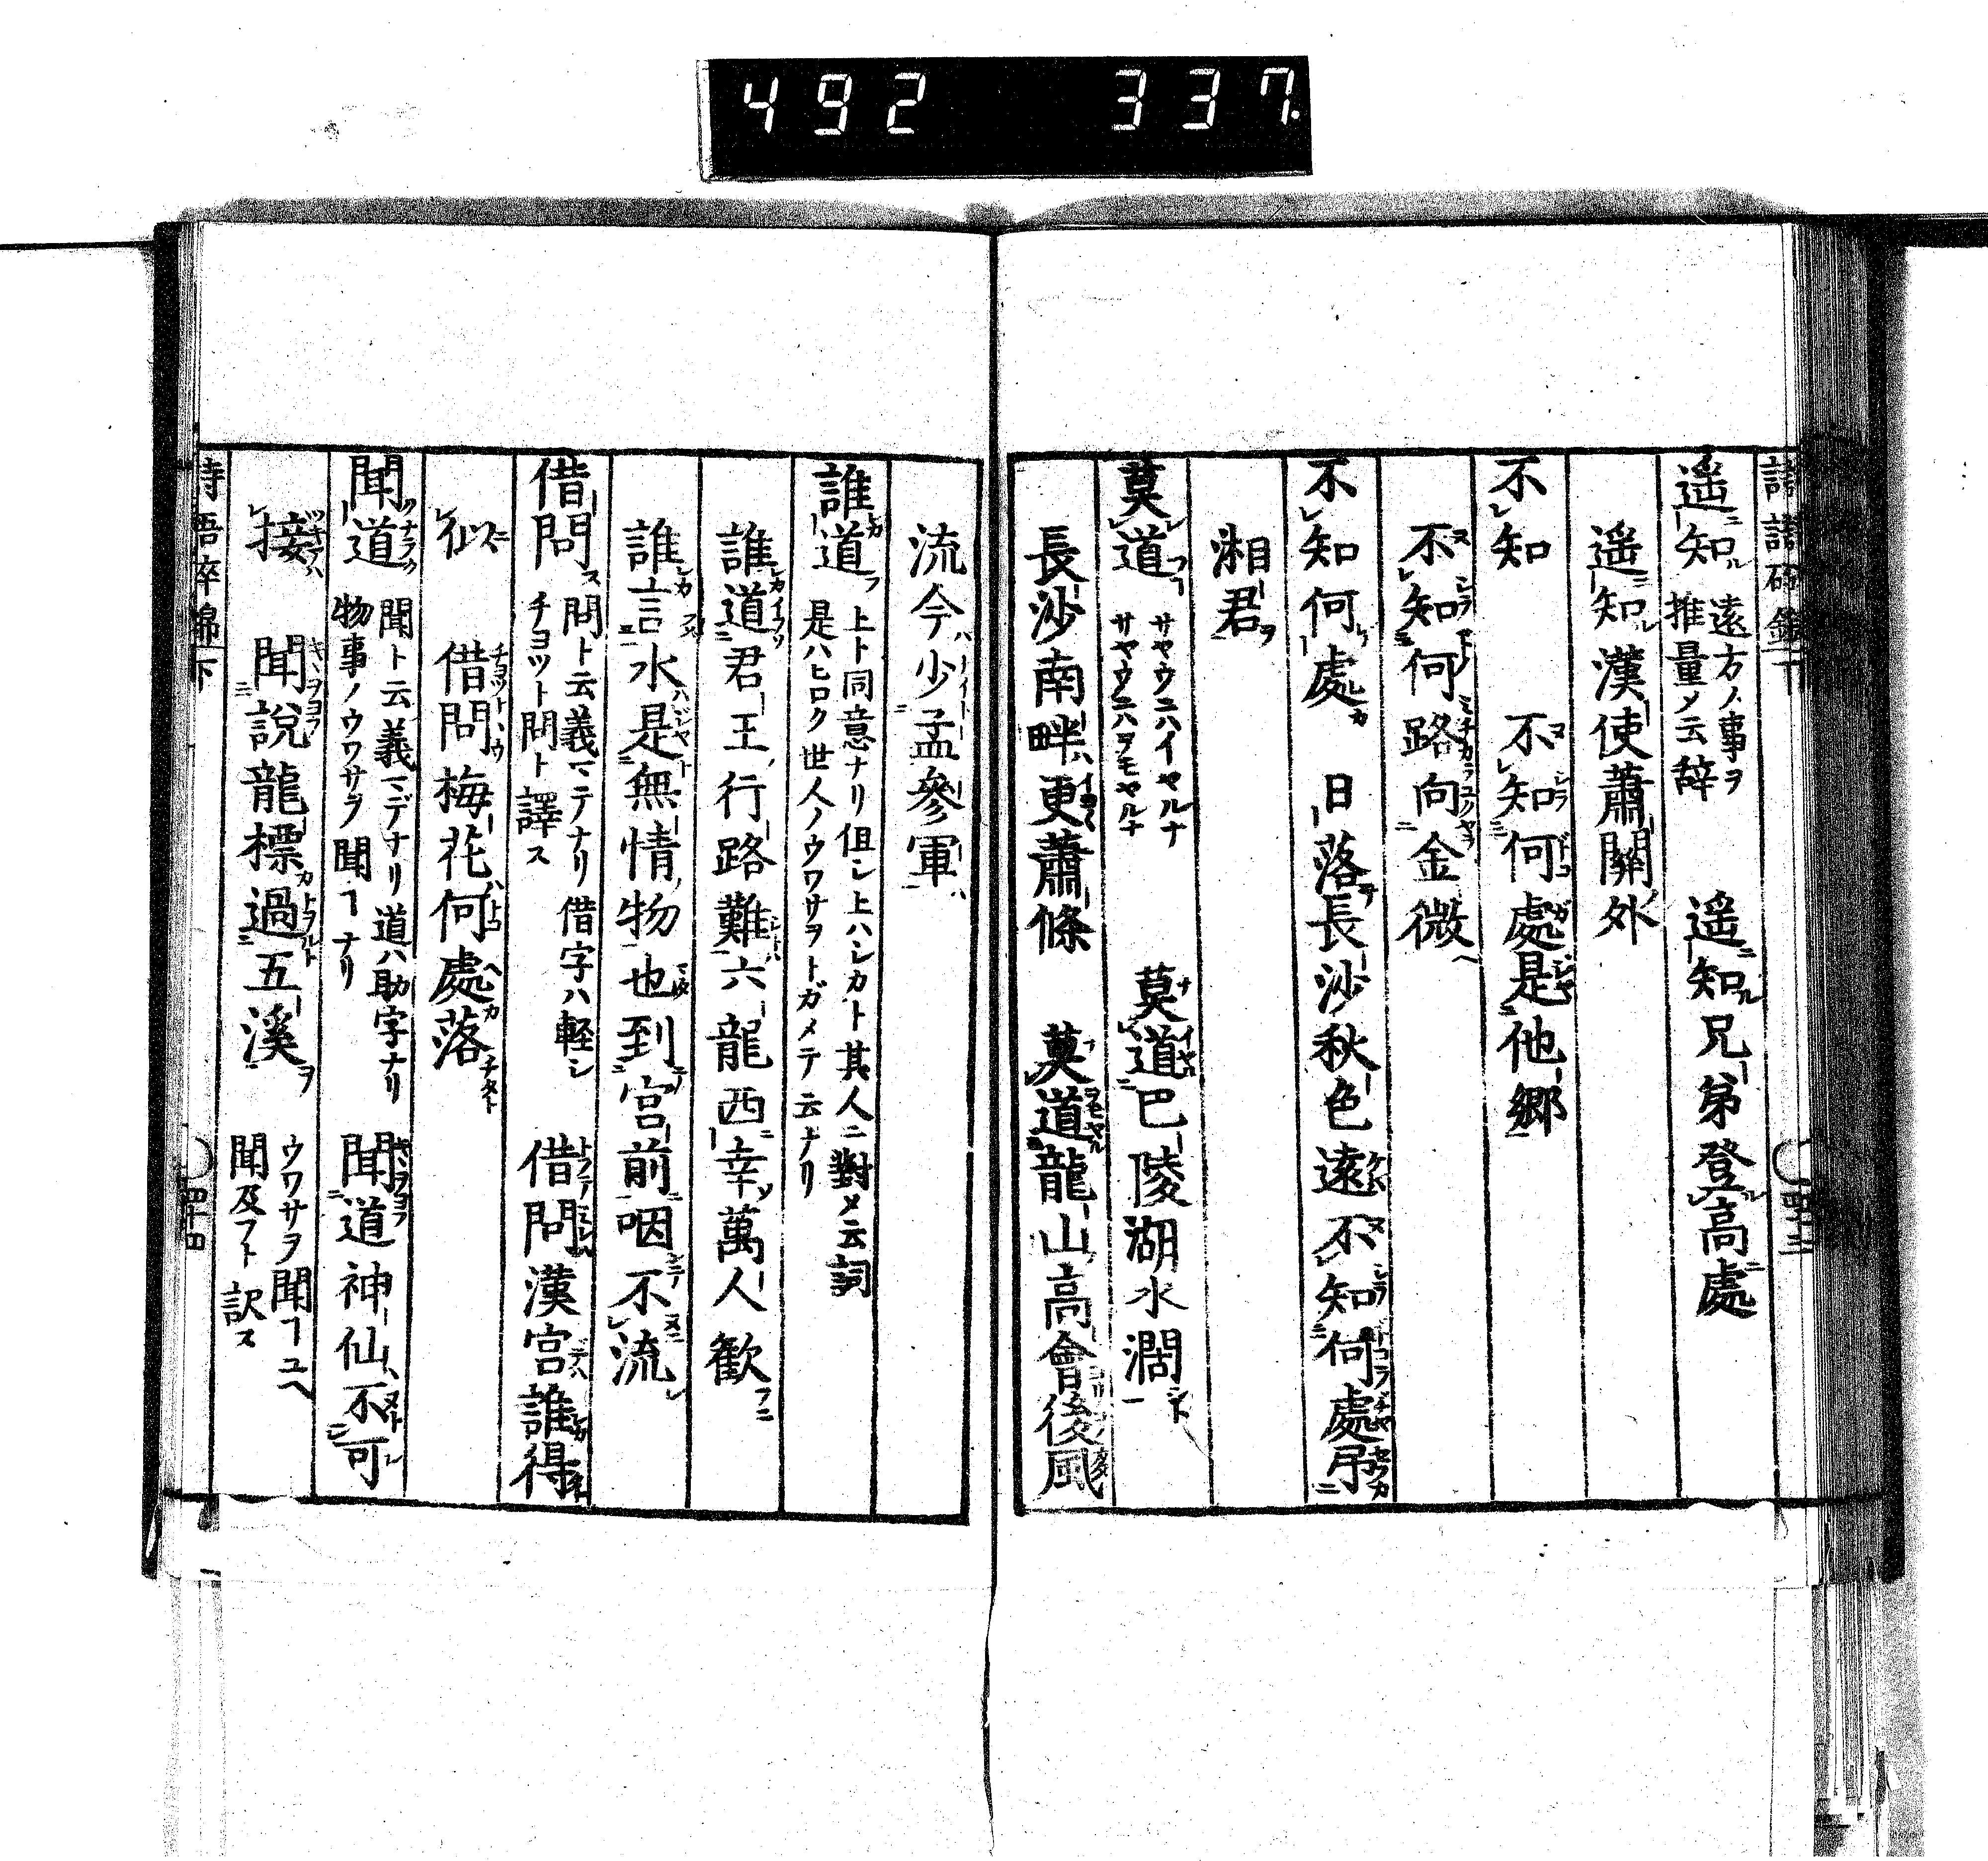 492 337
遥知 遠方ノ事ヲ
推量メ云辞 遥知兄弟登高處
遥知漢使蕭關外
不知 不知何處是他郷
不知何路向金微
不知何處 日落長沙秋色遠不知何處弔
湘君
莫道 サヤウニハイヤルナ
サヤウニハヲモヤルナ 莫道巴陵湖水濶
長沙南畔更蕭條 莫道龍山高會後風
流今少孟參軍
誰道 上ト同意ナリ但シ上ハシカト其人ニ對メ云詞
是ハヒロク世人ノウワサヲトガメテ云ナリ
誰道君王行路難六龍西幸萬人歓
誰言水是無情物也到宮前咽不流
借問 問ト云義マデナリ借字ハ軽シ
チヨツト問ト譯ス 借問漢宮誰得
似 借問梅花何處落
聞道 聞ト云義マデナリ道ハ助字ナリ
物事ノウワサヲ聞ヿナリ 聞道神仙不可
接 聞說龍標過五溪 ウワサヲ聞ヿユヘ
聞及フト訳ス
詩語砕錦下 四十四